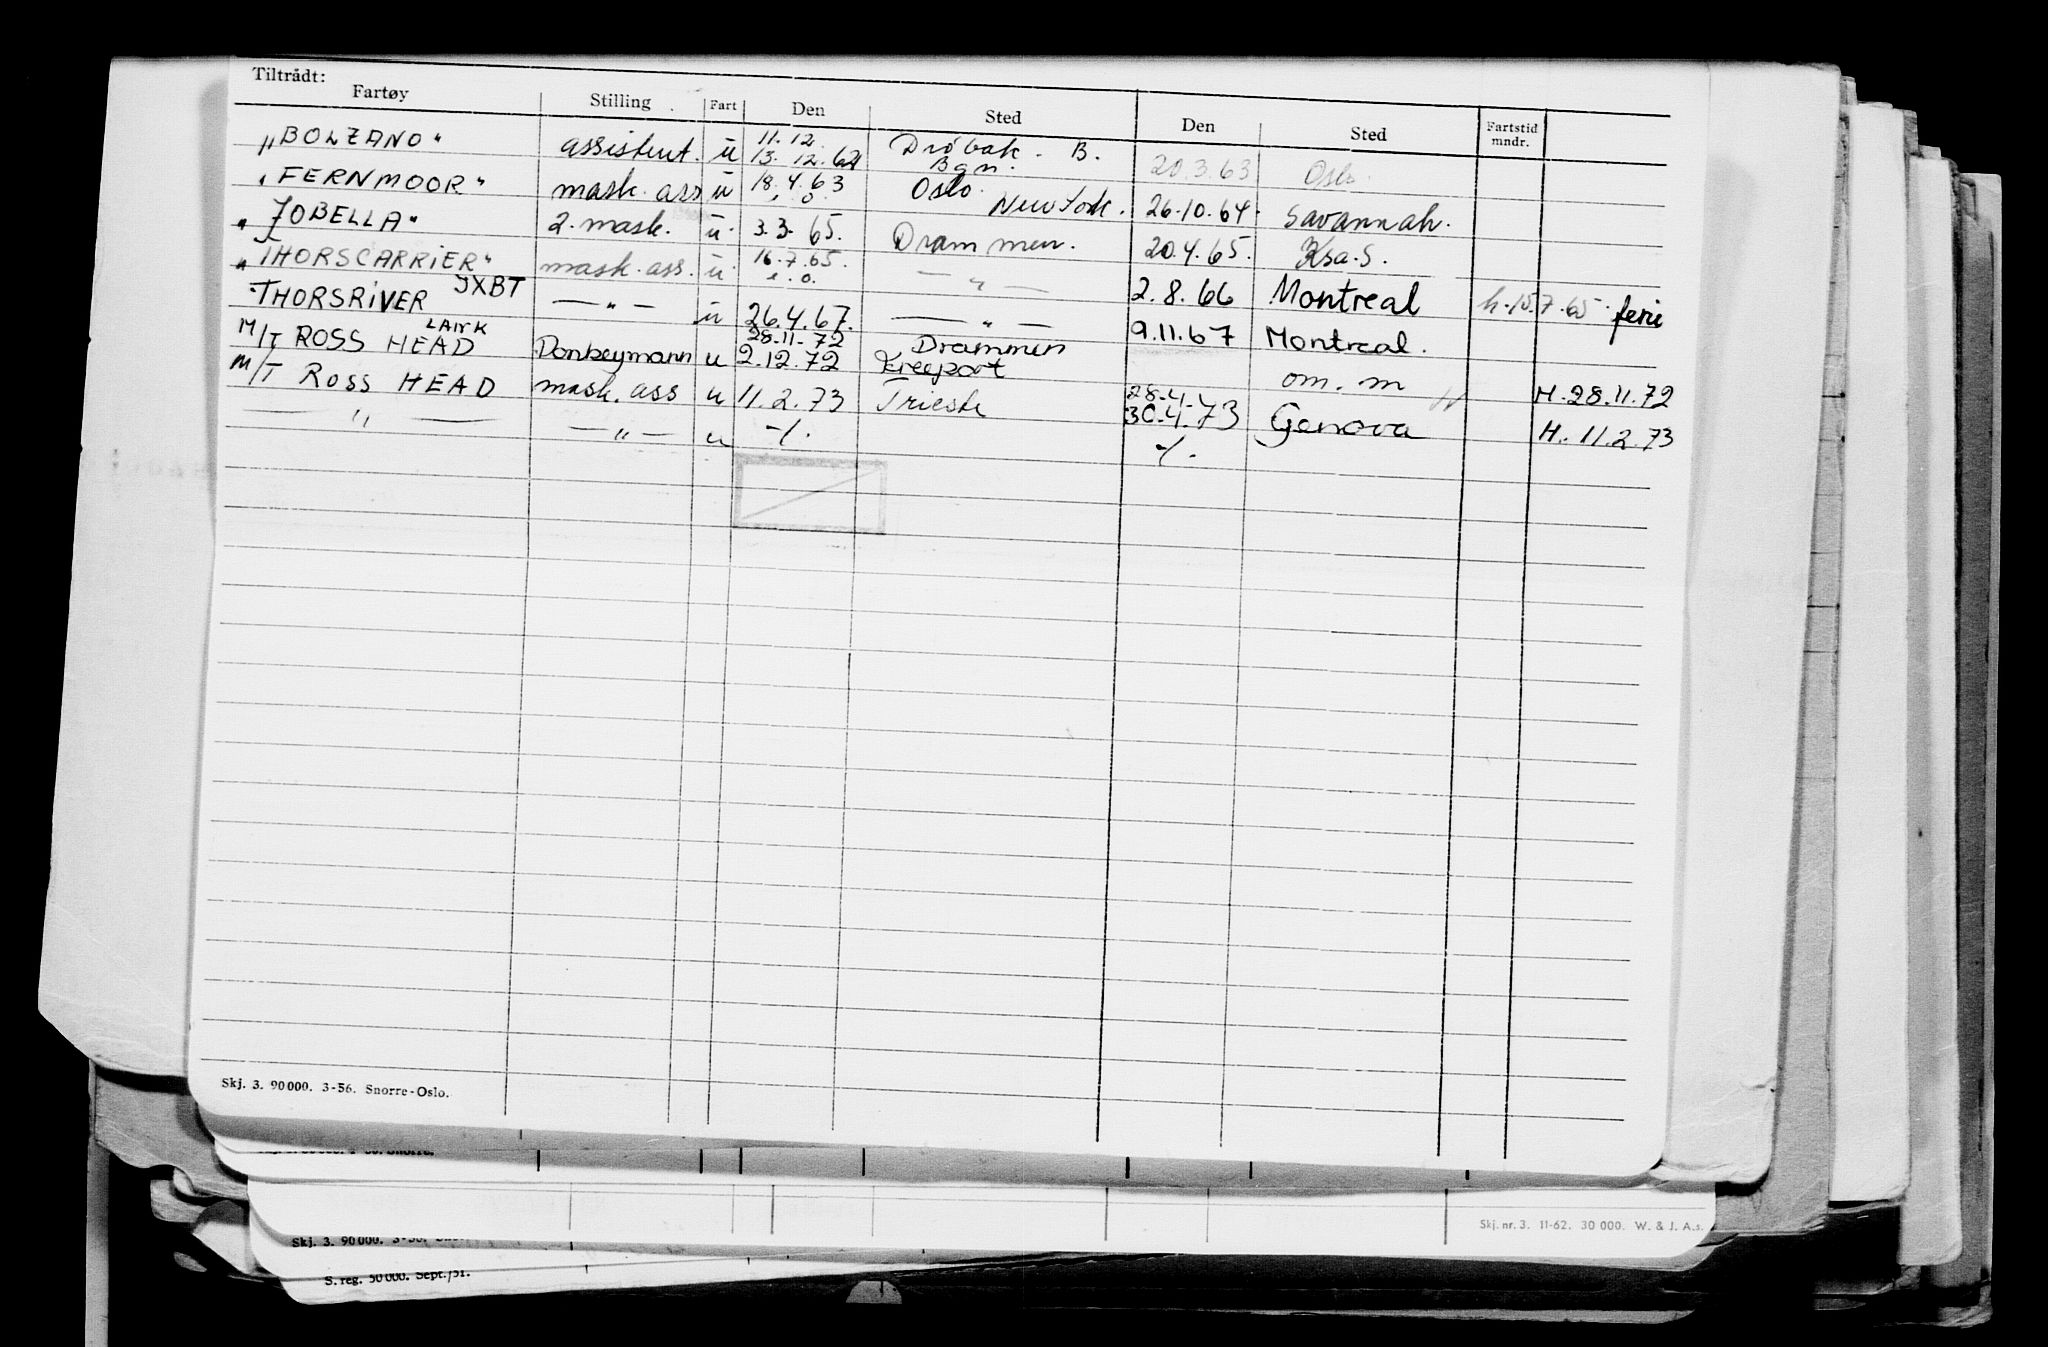 Tiltrådt:
Fartøy Stilling Fart Den Sted Den Sted Fartstid mndr.
„BOLZANO" assistent. ü 11.12. 13. 12. 62 Drøbak - B. Bgn. 20.3.63 Oslo.
„FERNMOOR" mask. ass ü 18.4.63 Oslo. New York. 26.10.64. Savannah.
„JOBELLA" 2. mask. ü 3.3. 65. Drammen. 20.4.65. Ksa.S.
„THORSCARRIER" mask. ass. ü 16.7.65. — " — 2.8.66 Montreal h. 15.7.65. ferie
JXBT
THORSRIVER — " — ü 26.4.67. — " — 9.11.67 Montreal.
LAWK
M/T ROSS HEAD Donkeymann u 28.11.72 2.12.72 Drammen Freeport om. m H.28.11.72
M/T ROSS HEAD mask. ass u 11.2.73 Trieste 28.4.- 30.4.73 Genova H. 11.2.73
— " — — " — u -/. -/.
Skj. 3. 90000. 3-56. Snorre-Oslo.
Skj. nr. 3. 11-62. 30 000. W. & J. A.s.
Skj. 3. 90 000.
S. reg. 50 000. Sept./51.